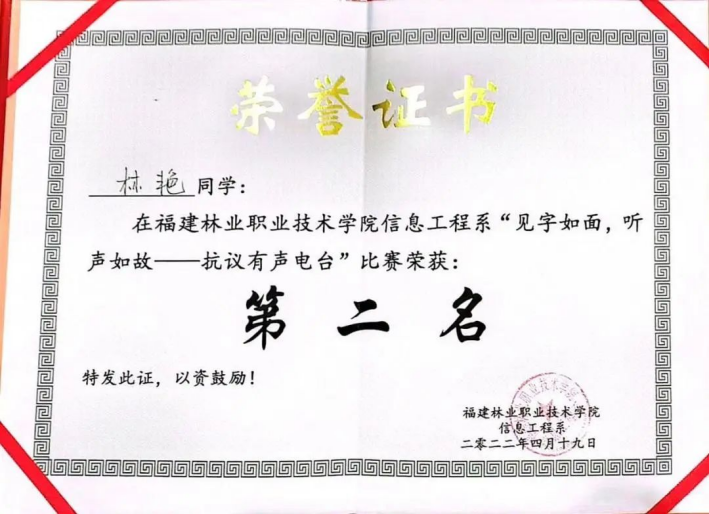 荣誉证书
林艳同学：
在福建林业职业技术学院信息工程系“见字如面，听
声如故——抗议有声电台”比赛荣获：
第二名
特发此证，以资鼓励！
福建林业职业技术学院
信息工程系
二零二二年四月十九日